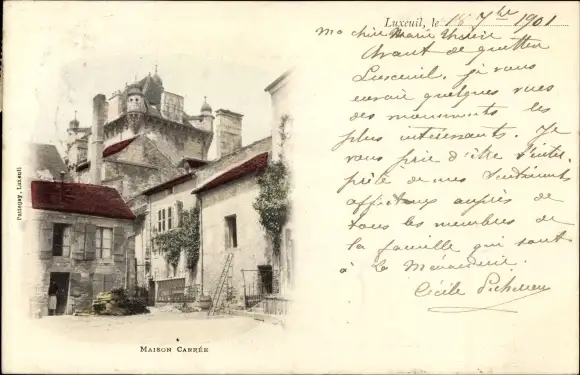 Luxeuil, le 16 7bre 1901
Ma chère Marie
Avant de quitter
Luxeuil, je vous
envoie quelques vues
des monuments les
plus intéressants. Je
vous prie d'être l'inter-
prète de mes sentiments
affectueux auprès de
tous les membres de
la famille qui sont
à la
Cécile
Pattegay, Luxeuil
MAISON CARRÉE